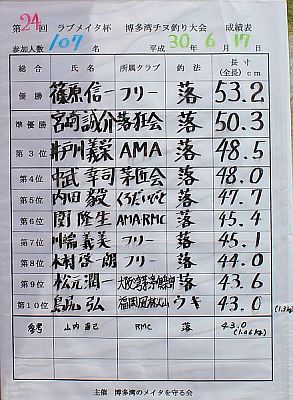 第24回 ラブメイタ杯 博多湾チヌ釣り大会 成績表
参加人数 107名 平成30年6月17日
総合 氏名 所属クラブ 釣法 長寸(全長)cm
優勝 篠原信一 フリー 落 53.2
準優勝 宮崎誠介 落狂会 落 50.3
第3位 井戸川義栄 AMA 落 48.5
第4位 中武幸司 茅匠会 落 48.0
第5位 内田毅 くろだいひと 落 47.7
第6位 関隆生 AMA RMC 落 45.4
第7位 川端義美 フリー 落 45.1
第8位 木村啓一朗 フリー 落 44.0
第9位 松元潤一 落 43.6
第10位 鳥尾弘 ウキ 43.0
参考 山内 RMC 落 43.0
主催 博多湾のメイタを守る会